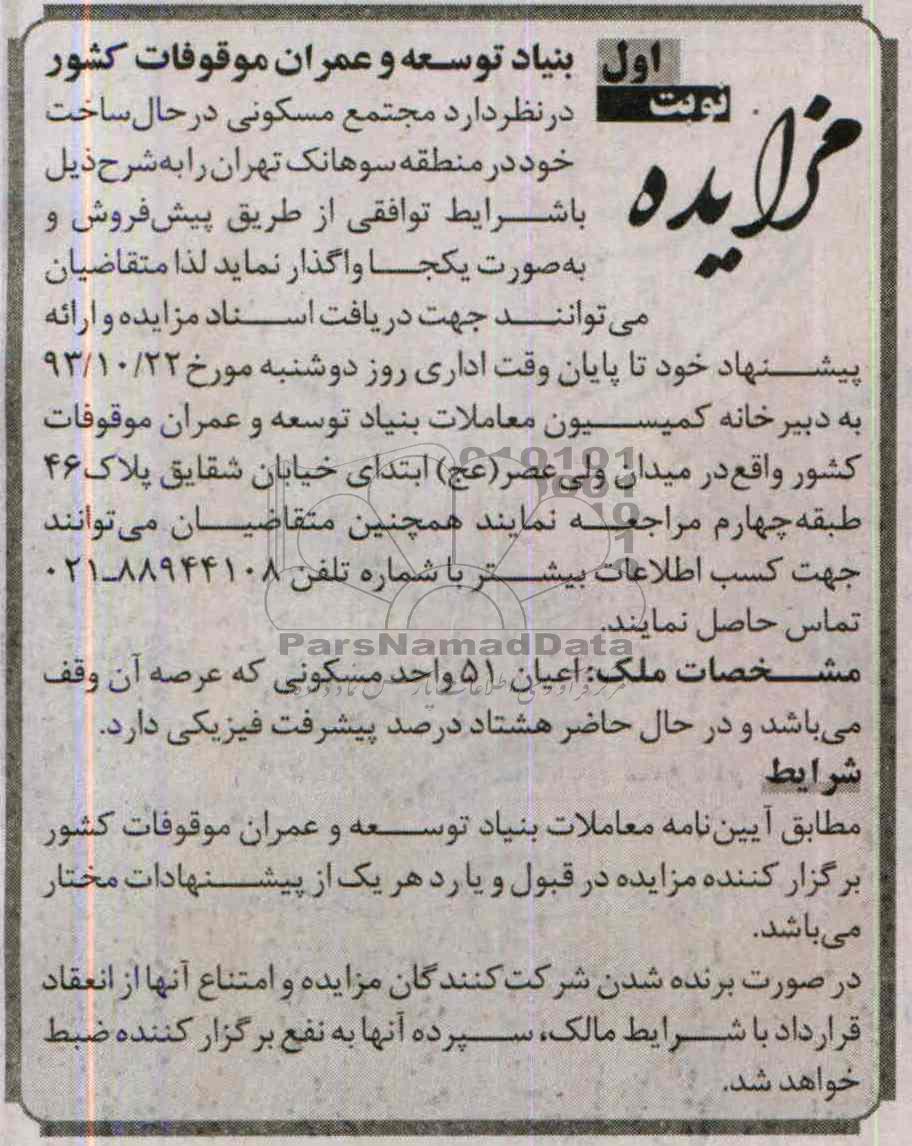 مزایده
اول
نوبت
بنیاد توسعه و عمران موقوفات کشور
در نظر دارد مجتمع مسکونی در حال ساخت
خود در منطقه سوهانک تهران را به شرح ذیل
با شرایط توافقی از طریق پیش‌فروش و
به صورت یکجا واگذار نماید لذا متقاضیان
می‌توانند جهت دریافت اسناد مزایده و ارائه
پیشنهاد خود تا پایان وقت اداری روز دوشنبه مورخ ۹۳/۱۰/۲۲
به دبیرخانه کمیسیون معاملات بنیاد توسعه و عمران موقوفات
کشور واقع در میدان ولی‌عصر(عج) ابتدای خیابان شقایق پلاک ۴۶
طبقه چهارم مراجعه نمایند همچنین متقاضیان می‌توانند
جهت کسب اطلاعات بیشتر با شماره تلفن ۸۸۹۴۴۱۰۸ـ۰۲۱
تماس حاصل نمایند.
ParsNamadData
مشخصات ملک: اعیان ۵۱ واحد مسکونی که عرصه آن وقف
می‌باشد و در حال حاضر هشتاد درصد پیشرفت فیزیکی دارد.
شرایط
مطابق آیین‌نامه معاملات بنیاد توسعه و عمران موقوفات کشور
برگزار کننده مزایده در قبول و یا رد هر یک از پیشنهادات مختار
می‌باشد.
در صورت برنده شدن شرکت‌کنندگان مزایده و امتناع آنها از انعقاد
قرارداد با شرایط مالک، سپرده آنها به نفع برگزار کننده ضبط
خواهد شد.